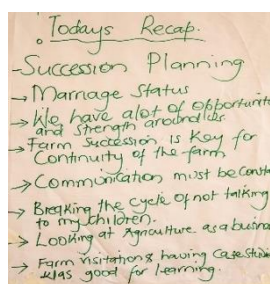 Todays Recap.
- Succession Planning
→ Marriage Status
→ We have alot of opportunit
and strength around us
→ Farm Succession is Key for
Continuity of the farm
→ Communication must be Consta
→ Breaking the cycle of not talking
to my children.
→ Looking at Agriculture as a busin
→ Farm visitation & having Case Stud
was good for learning.